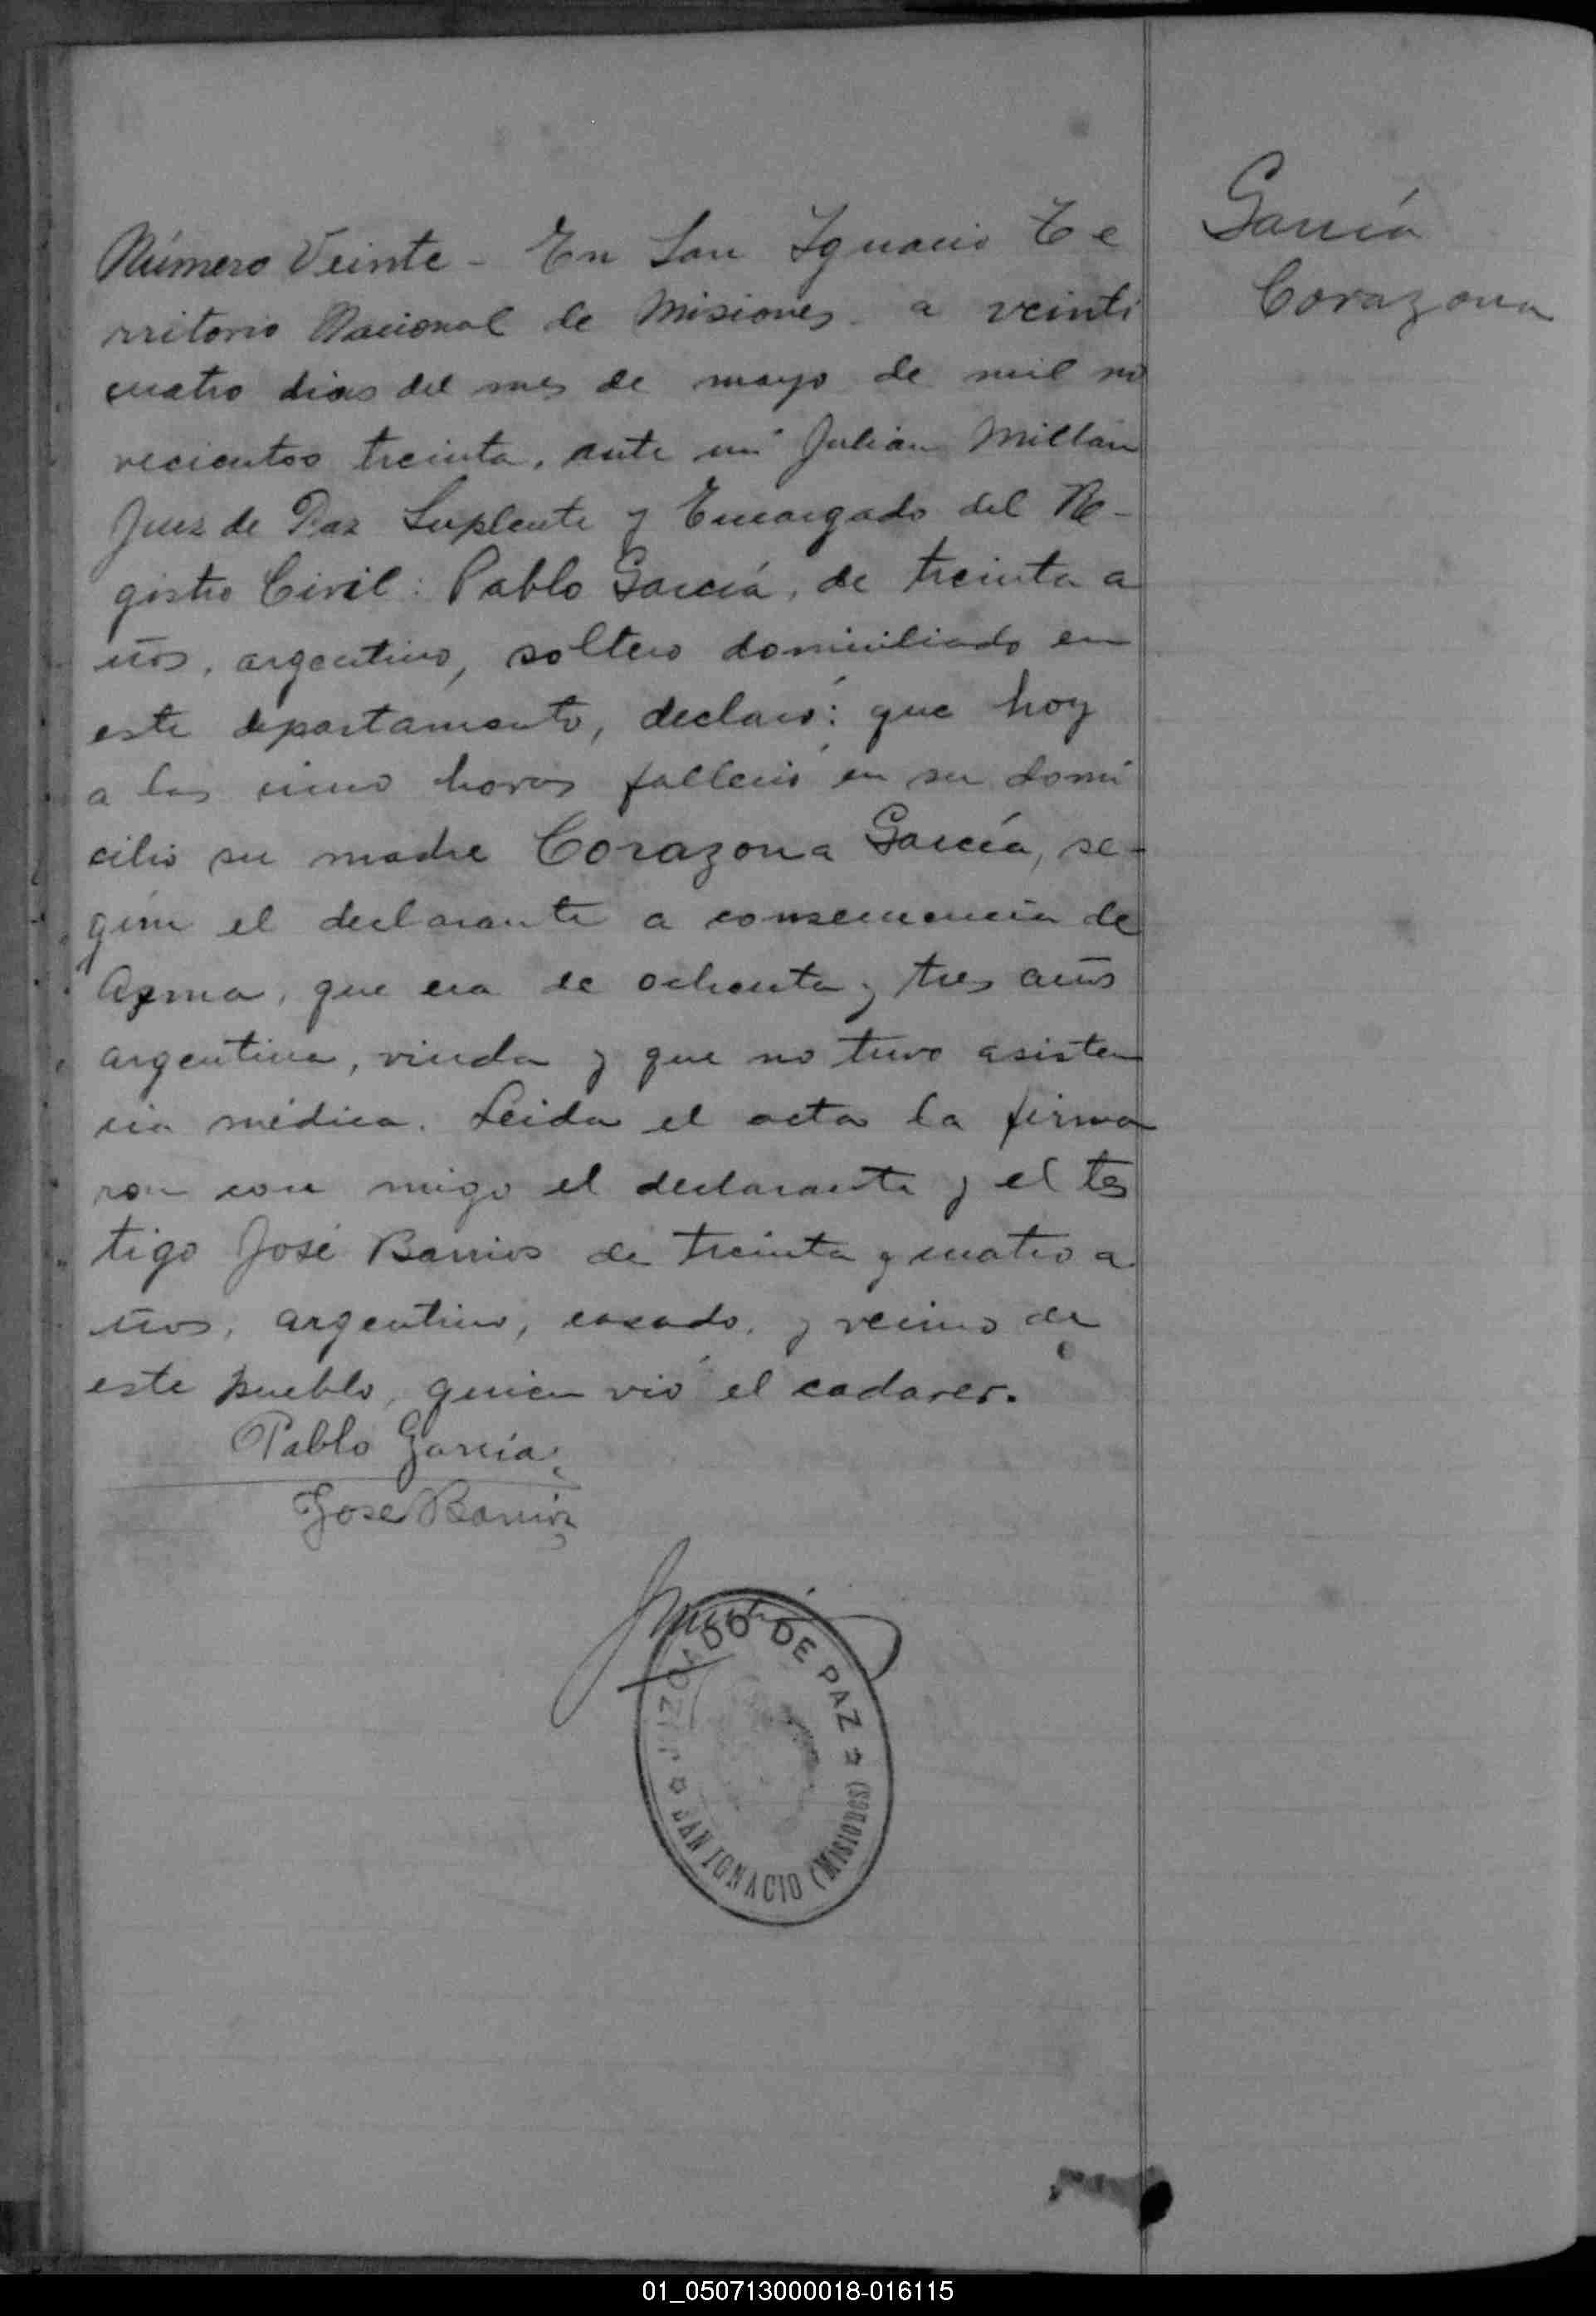 Número Veinte - En San Ignacio Te
rritorio Nacional de Misiones a veinti
cuatro dias del mes de mayo de mil no
vecientos treinta, ante mi Julián Millán
Juez de Paz Suplente y Encargado del Re-
gistro Civil: Pablo García, de treinta a
ños, argentino, soltero domiciliado en
este departamento, declaró: que hoy
a las cinco horas falleció en su domi
cilio su madre Corazona García, se-
gún el declarante a consecuencia de
Asma, que era de ochenta y tres años
argentina, viuda y que no tuvo asisten
cia médica. Leida el acta la firma
ron con migo el declarante y el tes
tigo José Barrios de treinta y cuatro a
ños, argentino, casado, y vecino de
este pueblo, quien vió el cadaver.
Pablo García
Jose Barrios
JUZGADO DE PAZ
SAN IGNACIO (Misiones)
García
Corazona
01_050713000018-016115